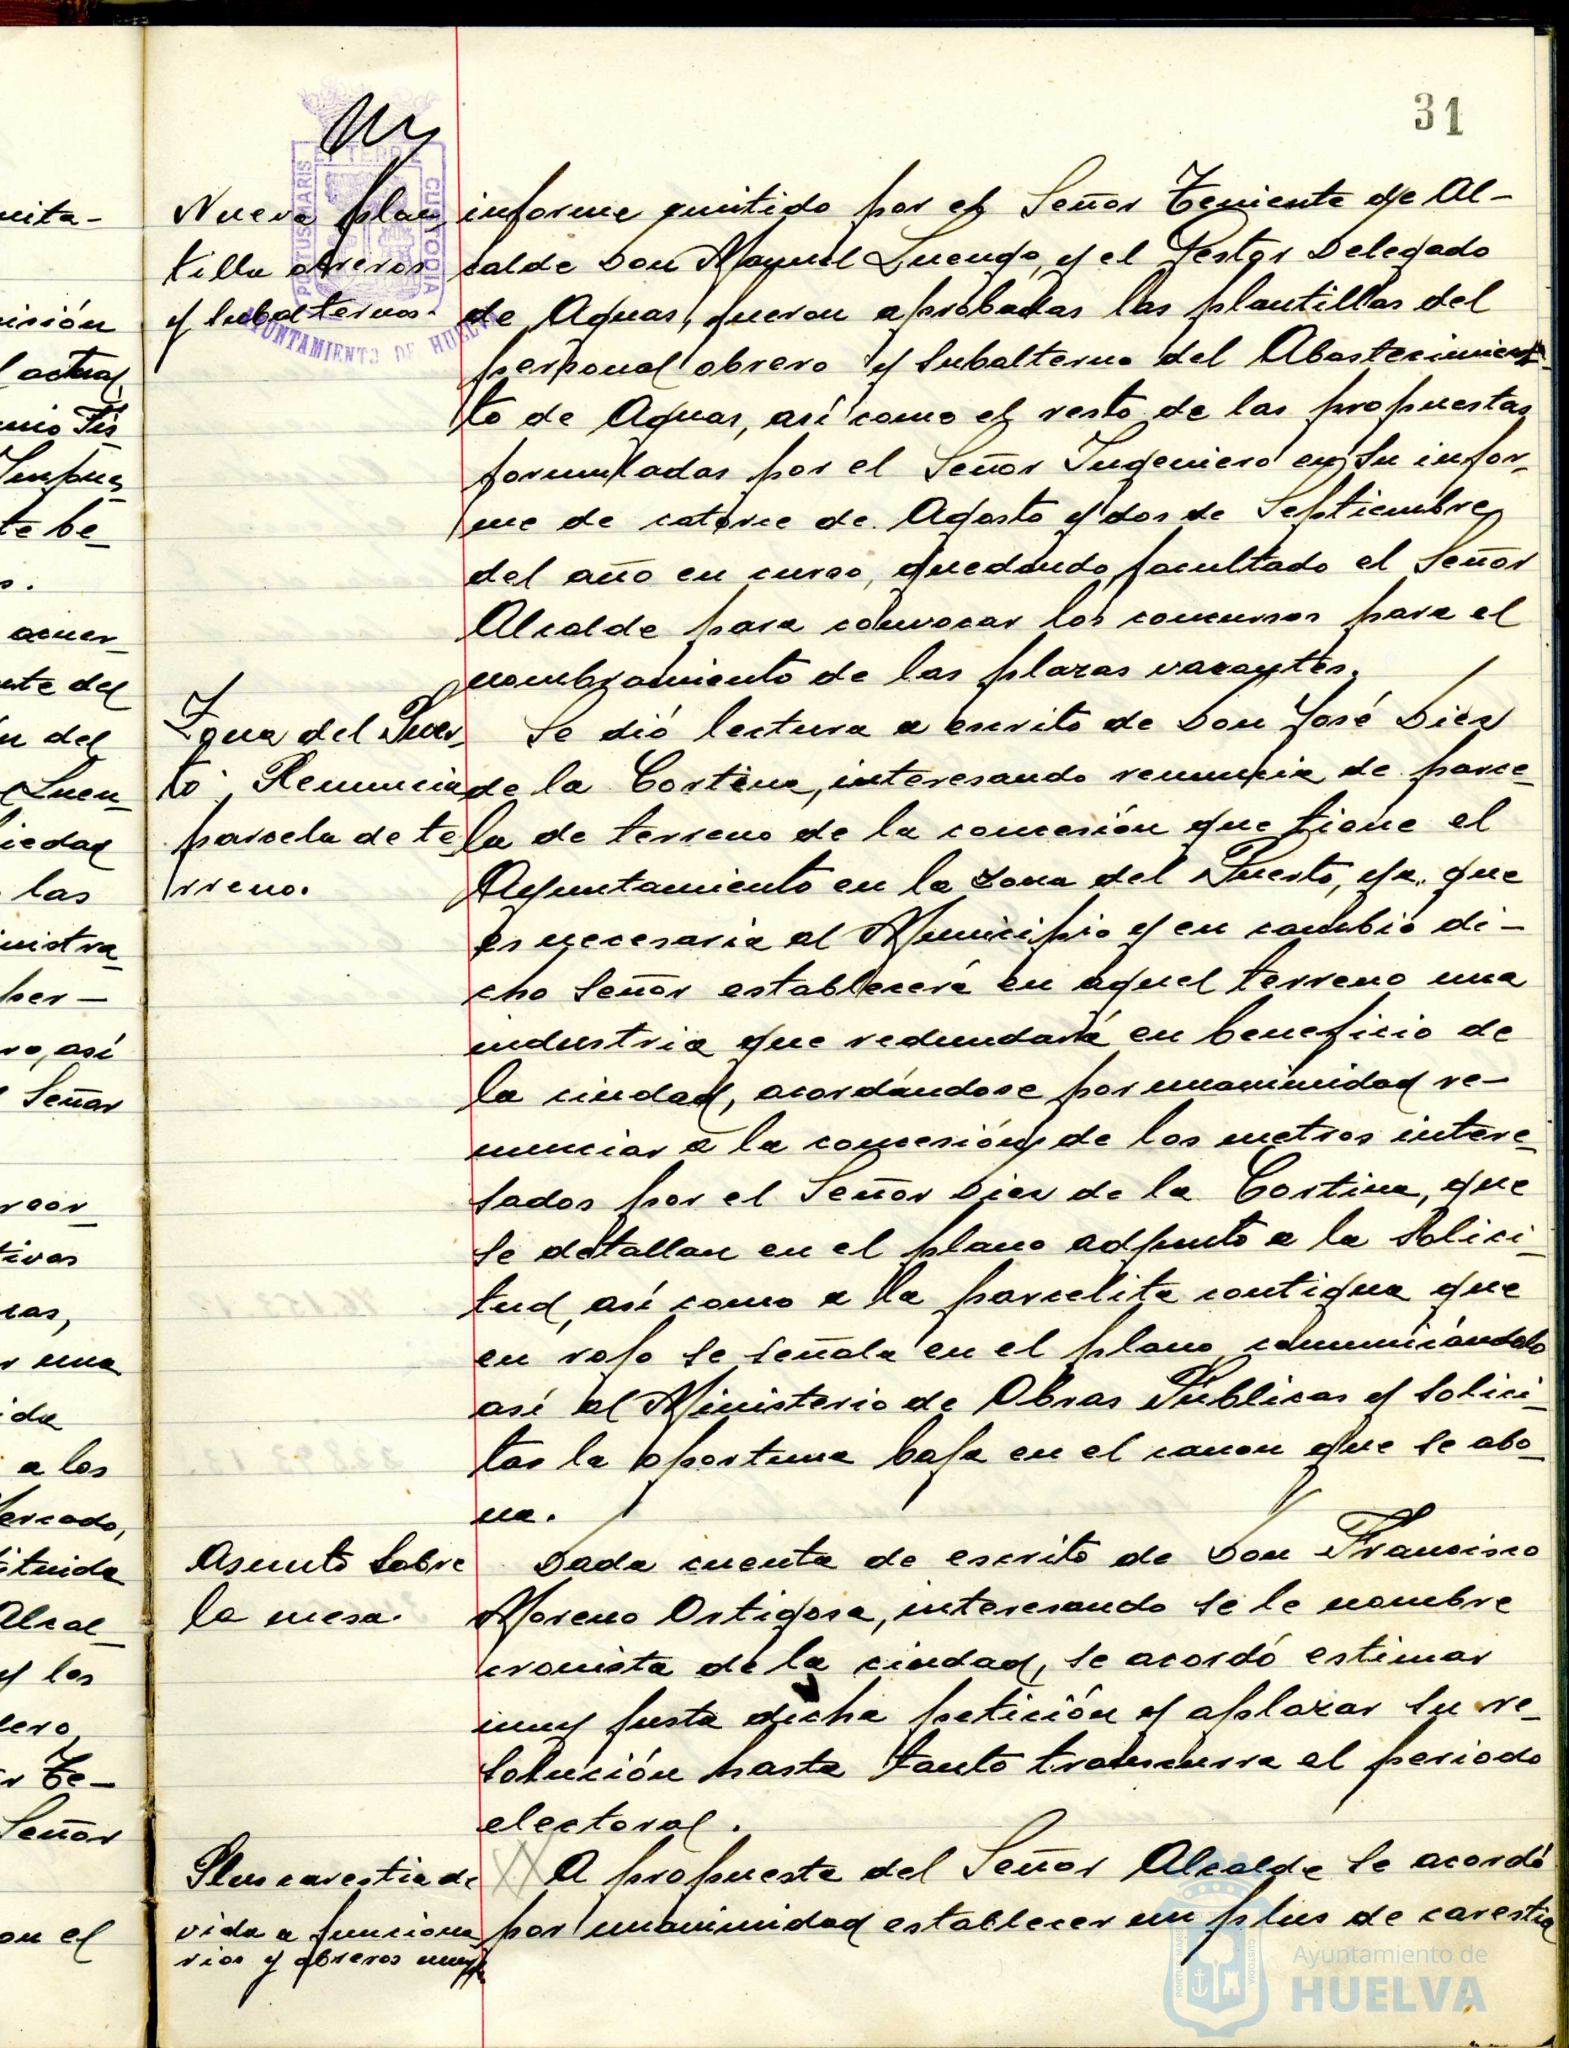 31
PORTUS MARIS ET TERRAE CUSTODIA
AYUNTAMIENTO DE HUELVA
Nueva plan
tilla obreros
y subalternos.
informe emitido por el Señor Teniente de Al-
calde Don Manuel Luengo, y el Gestor Delegado
de Aguas, fueron aprobadas las plantillas del
personal obrero y subalterno del Abastecimien-
to de Aguas, así como el resto de las propuestas
formuladas por el Señor Ingeniero en su infor-
me de catorce de Agosto y dos de Septiembre
del año en curso, quedando facultado el Señor
Alcalde para convocar los concursos para el
nombramiento de las plazas vacantes.
Zona del Puer-
to. Renuncia
parcela de te
rreno.
Se dió lectura a escrito de Don José Diez
de la Cortina, interesando renuncia de parce-
la de terreno de la concesión que tiene el
Ayuntamiento en la zona del Puerto, ya que
es necesaria al Municipio y en cambio di-
cho Señor establecerá en aquel terreno una
industria que redundará en beneficio de
la ciudad, acordándose por unanimidad re-
nunciar a la concesión de los metros intere-
sados por el Señor Diez de la Cortina, que
se detallan en el plano adjunto a la solici-
tud, así como a la parcelita contigua que
en rojo se señala en el plano, comunicándolo
así al Ministerio de Obras Públicas y solici-
tar la oportuna baja en el canon que se abo-
na.
Asunto sobre
la mesa.
Dada cuenta de escrito de Don Francisco
Moreno Ortigosa, interesando se le nombre
cronista de la ciudad, se acordó estimar
muy justa dicha petición y aplazar su re-
solución hasta tanto transcurra el periodo
electoral.
Plus carestia de
vida a funciona
rios y obreros
A propuesta del Señor Alcalde se acordó
por unanimidad establecer un plus de carestia
Ayuntamiento de
HUELVA